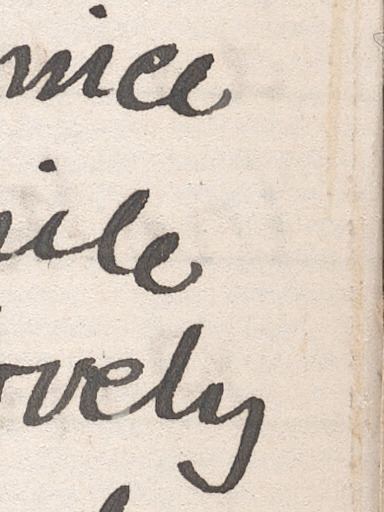 nice
ile
ovely